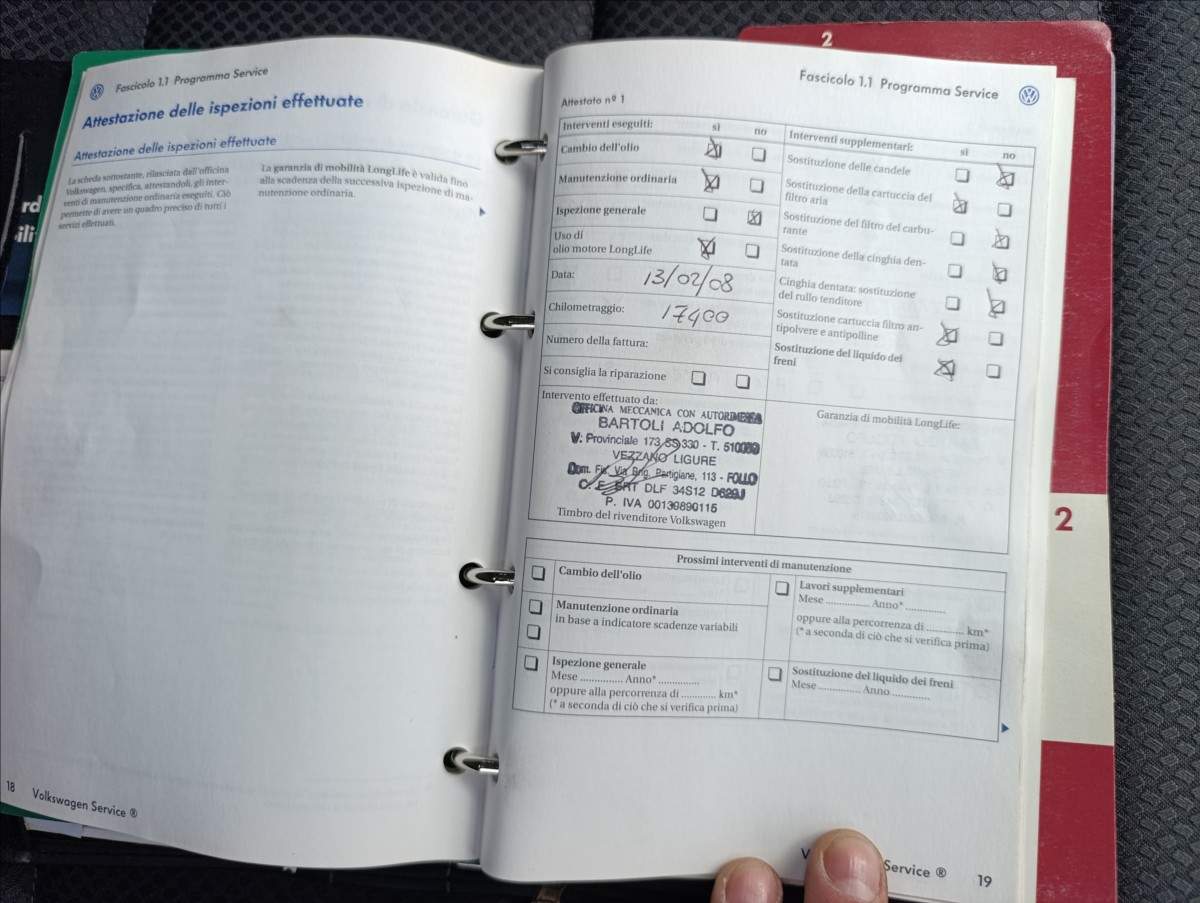 Fascicolo 1.1 Programma Service
Attestazione delle ispezioni effettuate
Attestazione delle ispezioni effettuate
La scheda sottostante, rilasciata dall'officina
Volkswagen, specifica, attestandoli, gli inter-
venti di manutenzione ordinaria eseguiti. Ciò
permette di avere un quadro preciso di tutti i
servizi effettuati.
La garanzia di mobilità LongLife è valida fino
alla scadenza della successiva ispezione di ma-
nutenzione ordinaria.
rd
ili
18 Volkswagen Service ®
2
Fascicolo 1.1 Programma Service
Attestato nº 1
Interventi eseguiti: sì no
Cambio dell'olio
Manutenzione ordinaria
Ispezione generale
Uso di
olio motore LongLife
Data: 13/02/08
Chilometraggio: 17400
Numero della fattura:
Si consiglia la riparazione
Interventi supplementari: sì no
Sostituzione delle candele
Sostituzione della cartuccia del
filtro aria
Sostituzione del filtro del carbu-
rante
Sostituzione della cinghia den-
tata
Cinghia dentata: sostituzione
del rullo tenditore
Sostituzione cartuccia filtro an-
tipolvere e antipolline
Sostituzione del liquido dei
freni
Intervento effettuato da:
OFFICINA MECCANICA CON AUTORIMESSA
BARTOLI ADOLFO
V. Provinciale 173 SS 330 - T.
VEZZANO LIGURE
Dom. Fis. Via Brig. Partigiane, 113 - FOLLO
DLF 34S12
P. IVA 00139890115
Timbro del rivenditore Volkswagen
Garanzia di mobilità LongLife:
2
Prossimi interventi di manutenzione
Cambio dell'olio
Manutenzione ordinaria
in base a indicatore scadenze variabili
Ispezione generale
Mese ............. Anno* ............
oppure alla percorrenza di .......... km*
(* a seconda di ciò che si verifica prima)
Lavori supplementari
Mese ............. Anno* ............
oppure alla percorrenza di ........... km*
(* a seconda di ciò che si verifica prima)
Sostituzione del liquido dei freni
Mese ............. Anno ............
V Service ® 19